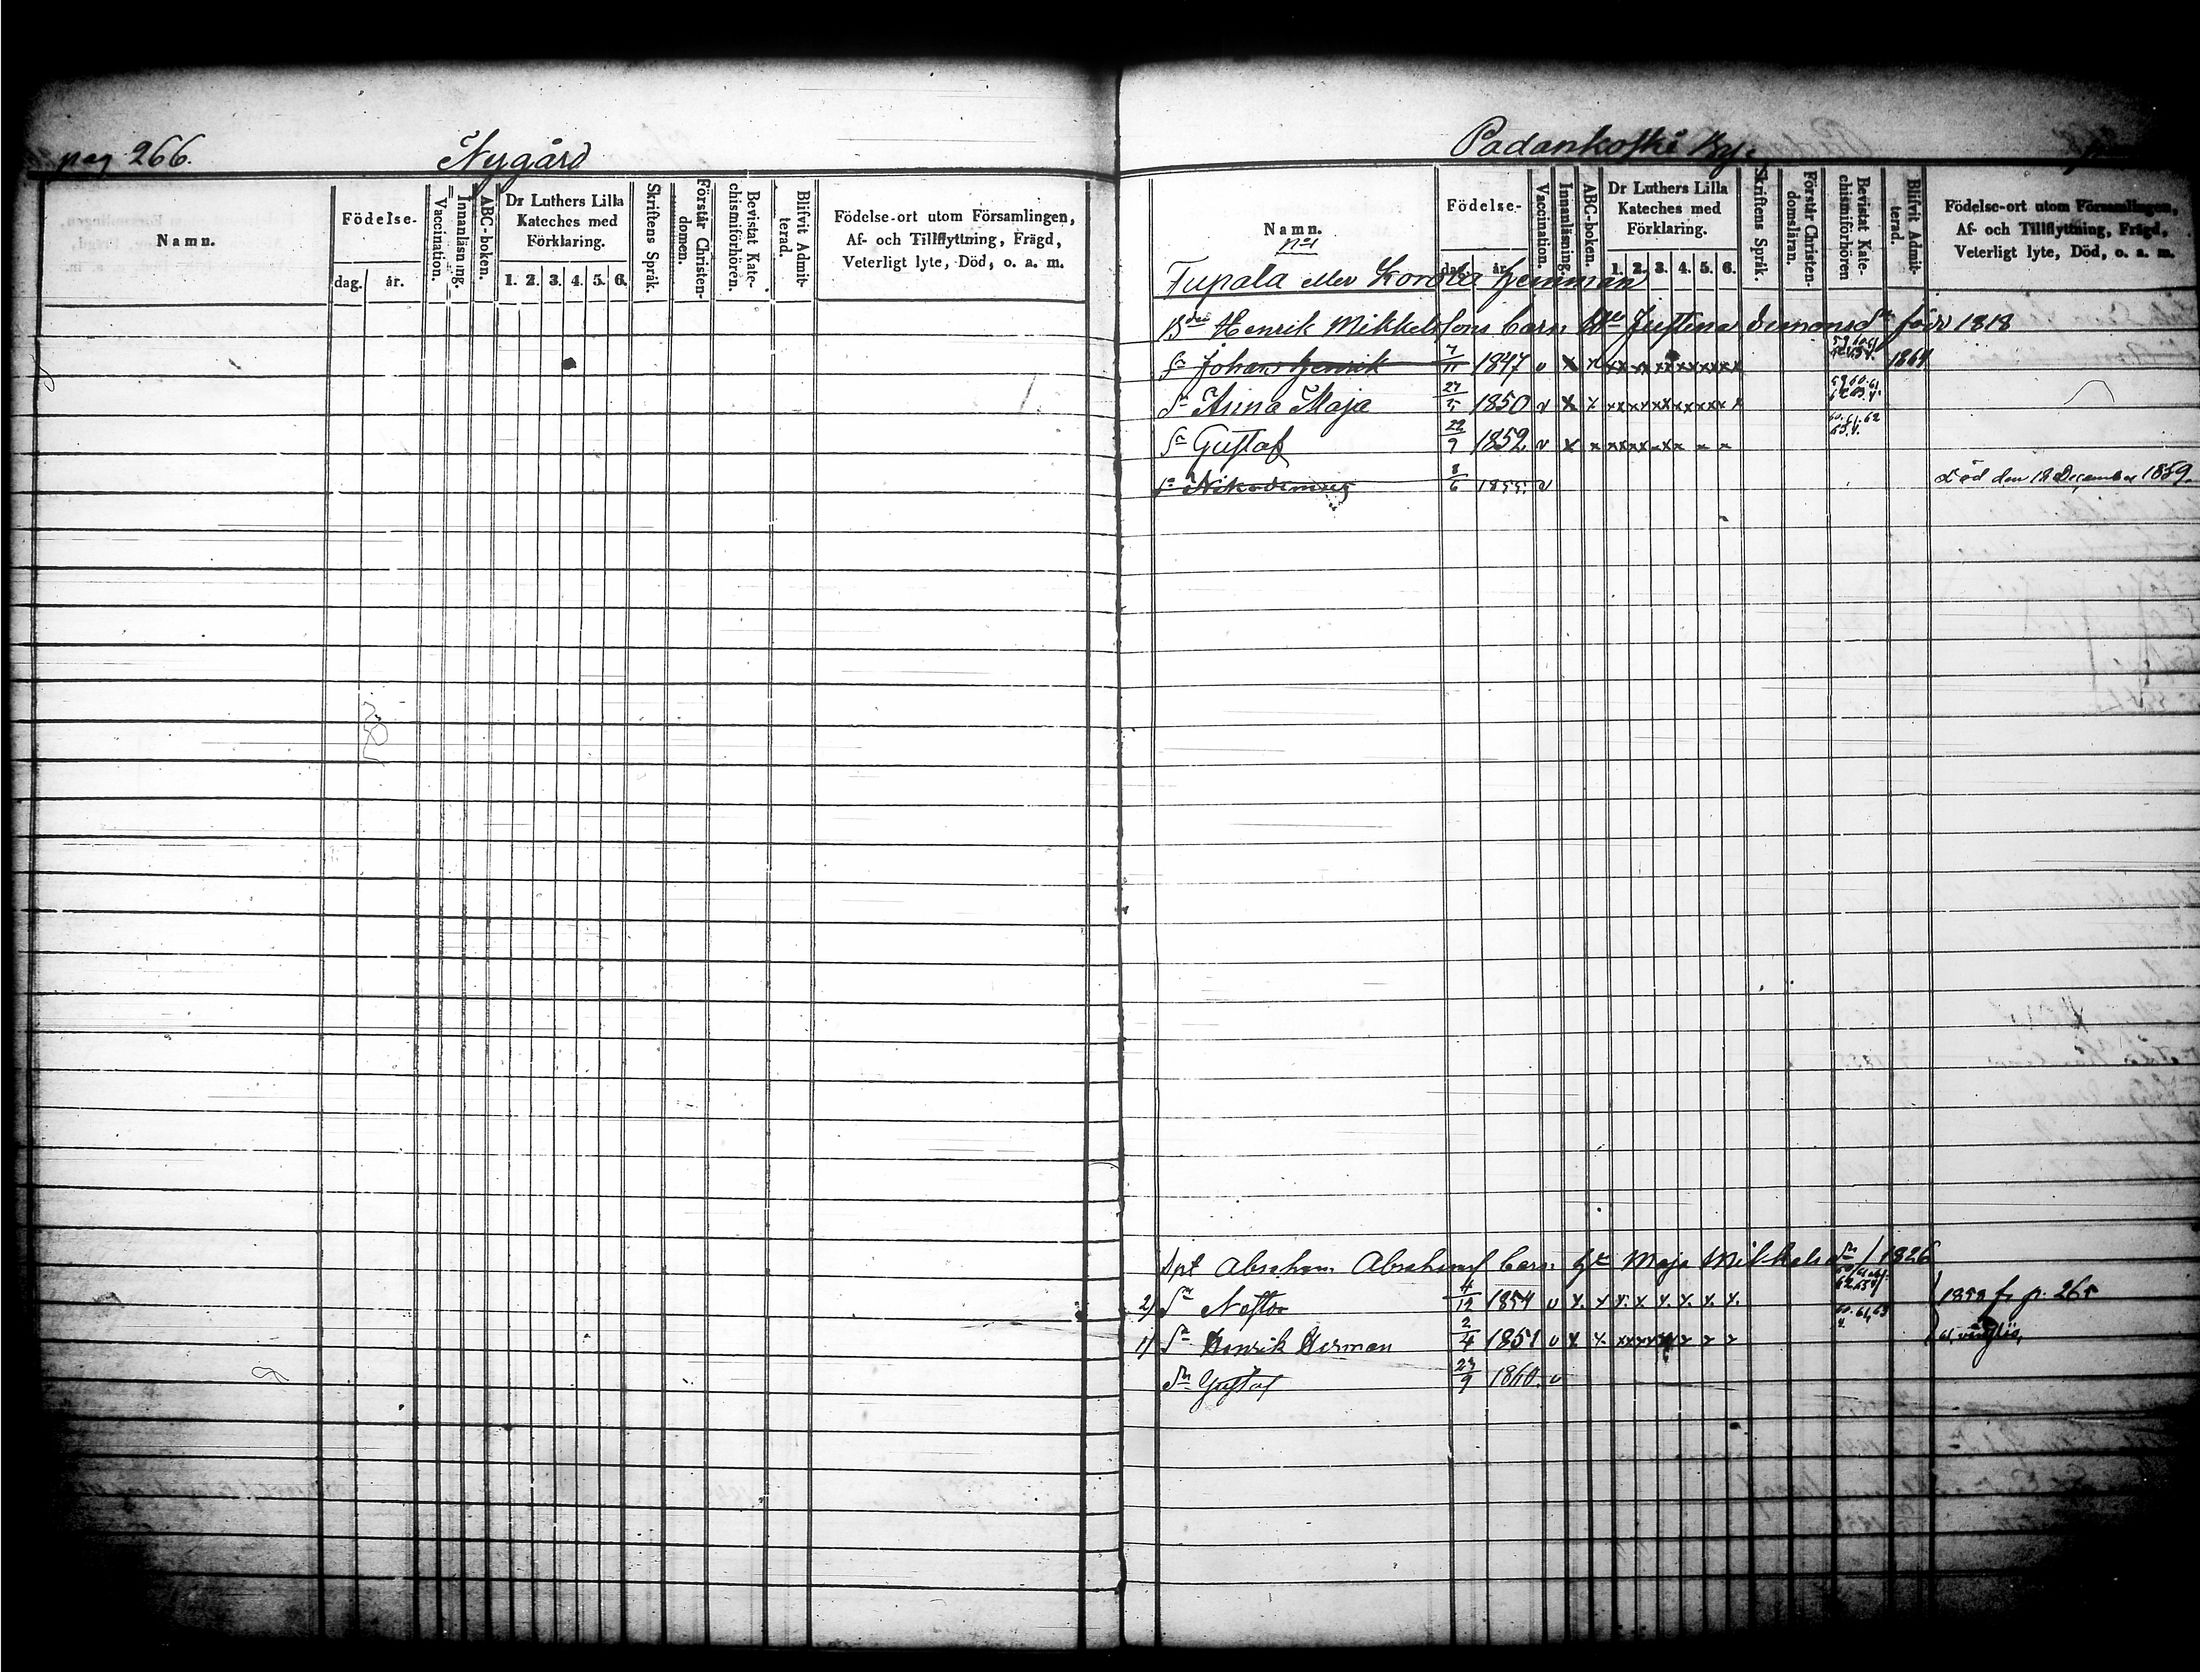 pag 266.
Nygård
Namn.
Födelse-
dag.
år.
Vaccination.
Innanläsning.
ABC-boken.
Dr Luthers Lilla
Kateches med
Förklaring.
1. 2. 3. 4. 5. 6.
Skriftens Språk.
Förstår Christen-
domen.
Bevistat Kate-
chismiförhören.
Blifvit Admit-
terad.
Födelse-ort utom Församlingen,
Af- och Tillflyttning, Frägd,
Veterligt lyte, Död, o. a. m.
Padankoski By.
Namn.
Födelse-
dag.
år.
Vaccination.
Innanläsning.
ABC-boken.
Dr Luthers Lilla
Kateches med
Förklaring.
1. 2. 3. 4. 5. 6.
Skriftens Språk.
Förstår Christen-
domslåran.
Bevistat Kate-
chismiförhören
Blifvit Admit-
terad.
Födelse-ort utom Församlingen,
Af- och Tillflyttning, Frägd,
Veterligt lyte, Död, o. a. m.
No 1
Tupala eller Korola hemman
Henrik Mikkelssons barn Justina född 1818
Sn Johan Henrik 1847 v 1864
Anna Maja 27/5 1850 v
Sn Gustaf 22/9 1852 v
Sn Nikodemus 8/6 1855 v Död den 12 December 1859.
Abraham Abrahams barn Maja Mikkelsdr 1826
2) Sn Nestor 4/12 1854 v 1858 fr p. 265
1) Sn Henrik Herman 2/4 1851 v
Sn Gustaf 23/9 1860 v